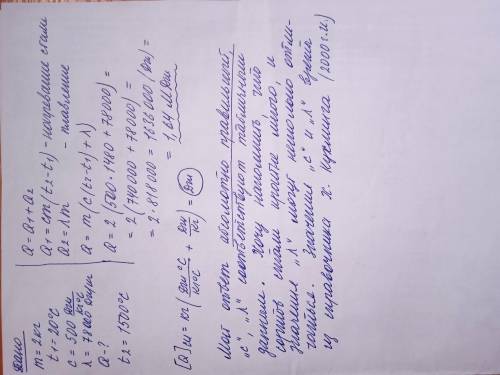 Дано
m = 2 кг
t₁ = 20°C
c = 500 Дж/кг°C
λ = 78000 Дж/кг
Q - ?
t₂ = 1500°C
Q = Q₁ + Q₂
Q₁ = cm(t₂-t₁) - нагревание стали
Q₂ = λm - плавление
Q = m(c(t₂-t₁) + λ)
Q = 2(500·1480 + 78000) =
= 2(740000 + 78000) =
= 2·818000 = 1636000 (Дж) =
= 1,64 МДж
[Q] = кг(Дж°C/кг°C + Дж/кг) = Дж
Мой ответ абсолютно правильный,
"c" "λ" соответствуют табличным
данным. Хочу напомнить что
сортов стали крайне много, и
значения "λ" могут немного отли-
чаться. Значения "c" и "λ" взяты
из справочника Х. Кухлинга (2000 г.и)